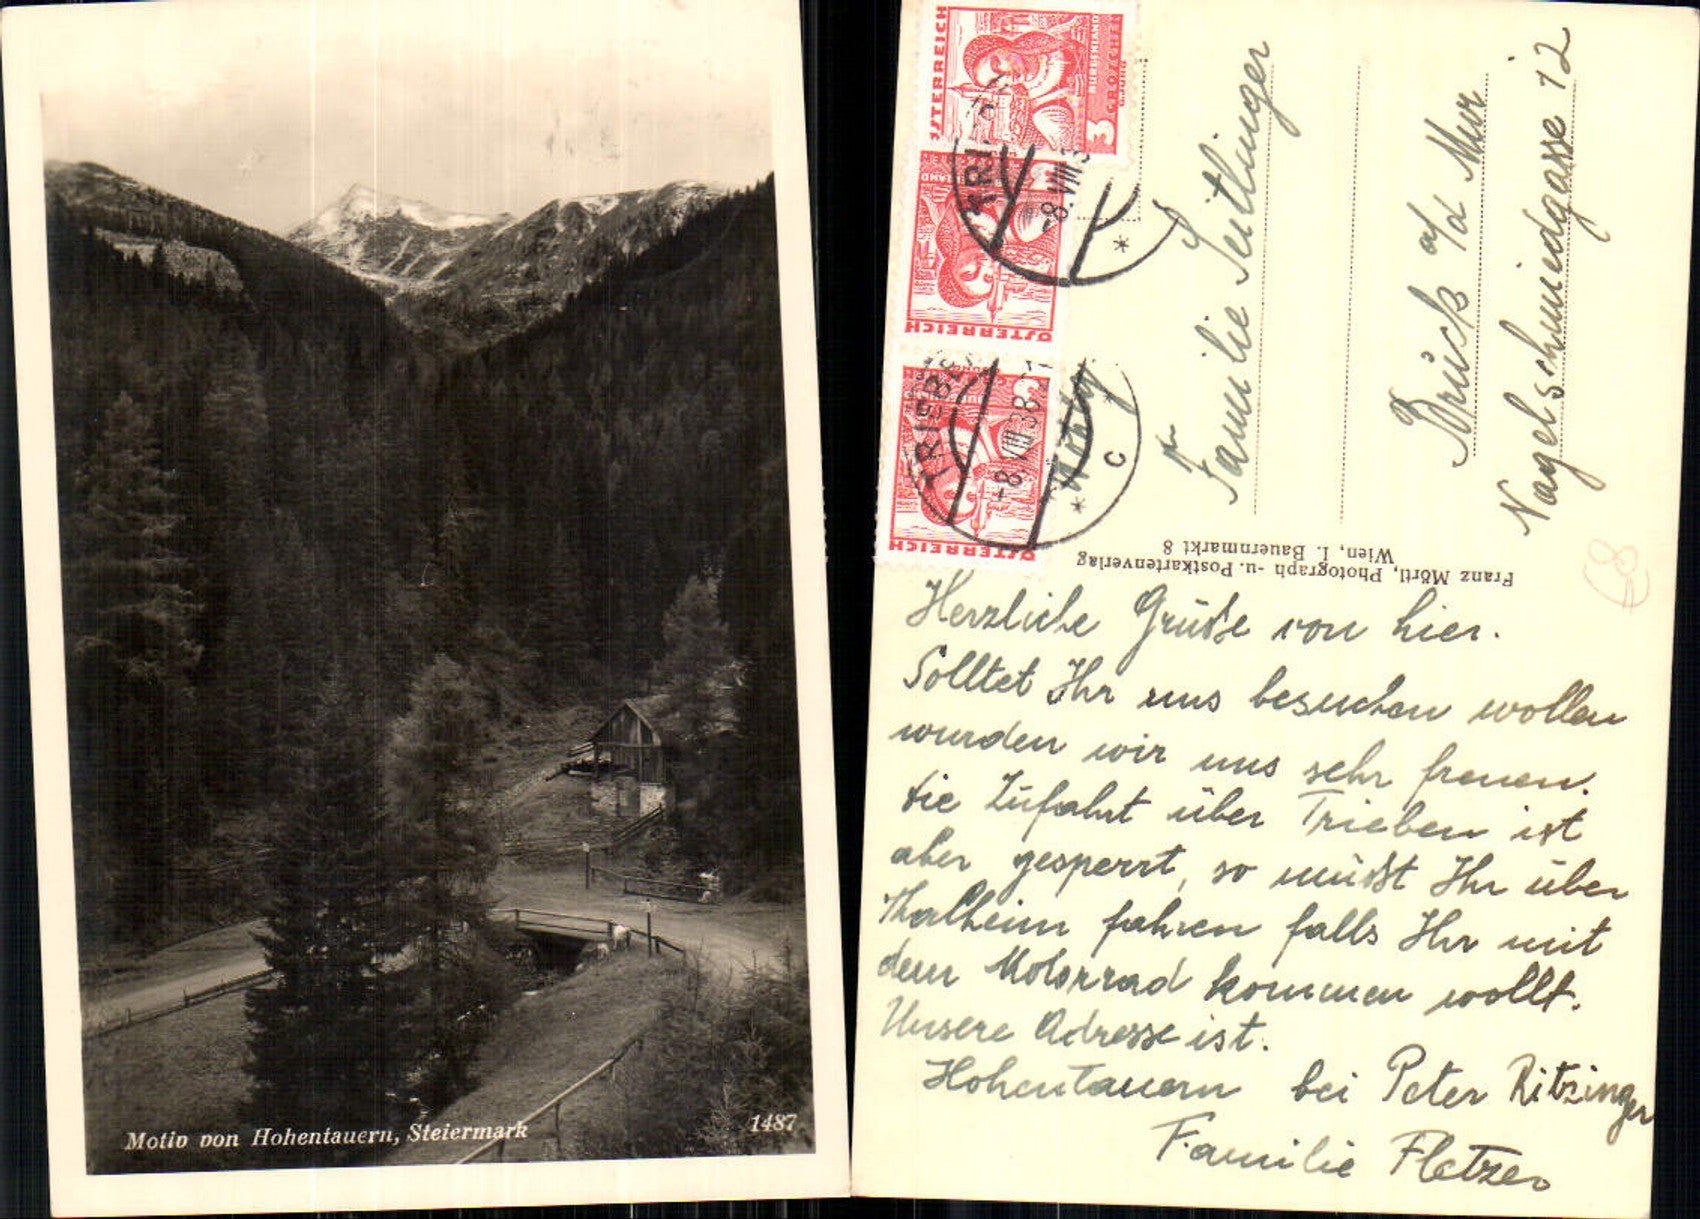 Motiv von Hohentauern, Steiermark
1487
ÖSTERREICH
BURGENLAND
3 GROSCHEN
ÖSTERREICH
ÖSTERREICH
TRIEBEN
-8.VIII.38
TRIEBEN
-8.VIII.38
C
Familie Seitlinger
Bruck a/d Mur
Nagelschmiedgasse 12
Franz Mörtl, Photograph -u. Postkartenverlag
Wien, I. Bauernmarkt 8
Herzliche Grüße von hier.
Solltet Ihr uns besuchen wollen
wurden wir uns sehr freuen.
die Zufahrt über Trieben ist
aber gesperrt, so müßt Ihr über
Thalheim fahren falls Ihr mit
dem Motorrad kommen wollt.
Unsere Adresse ist.
Hohentauern bei Peter Ritzinger
Familie Fletzer